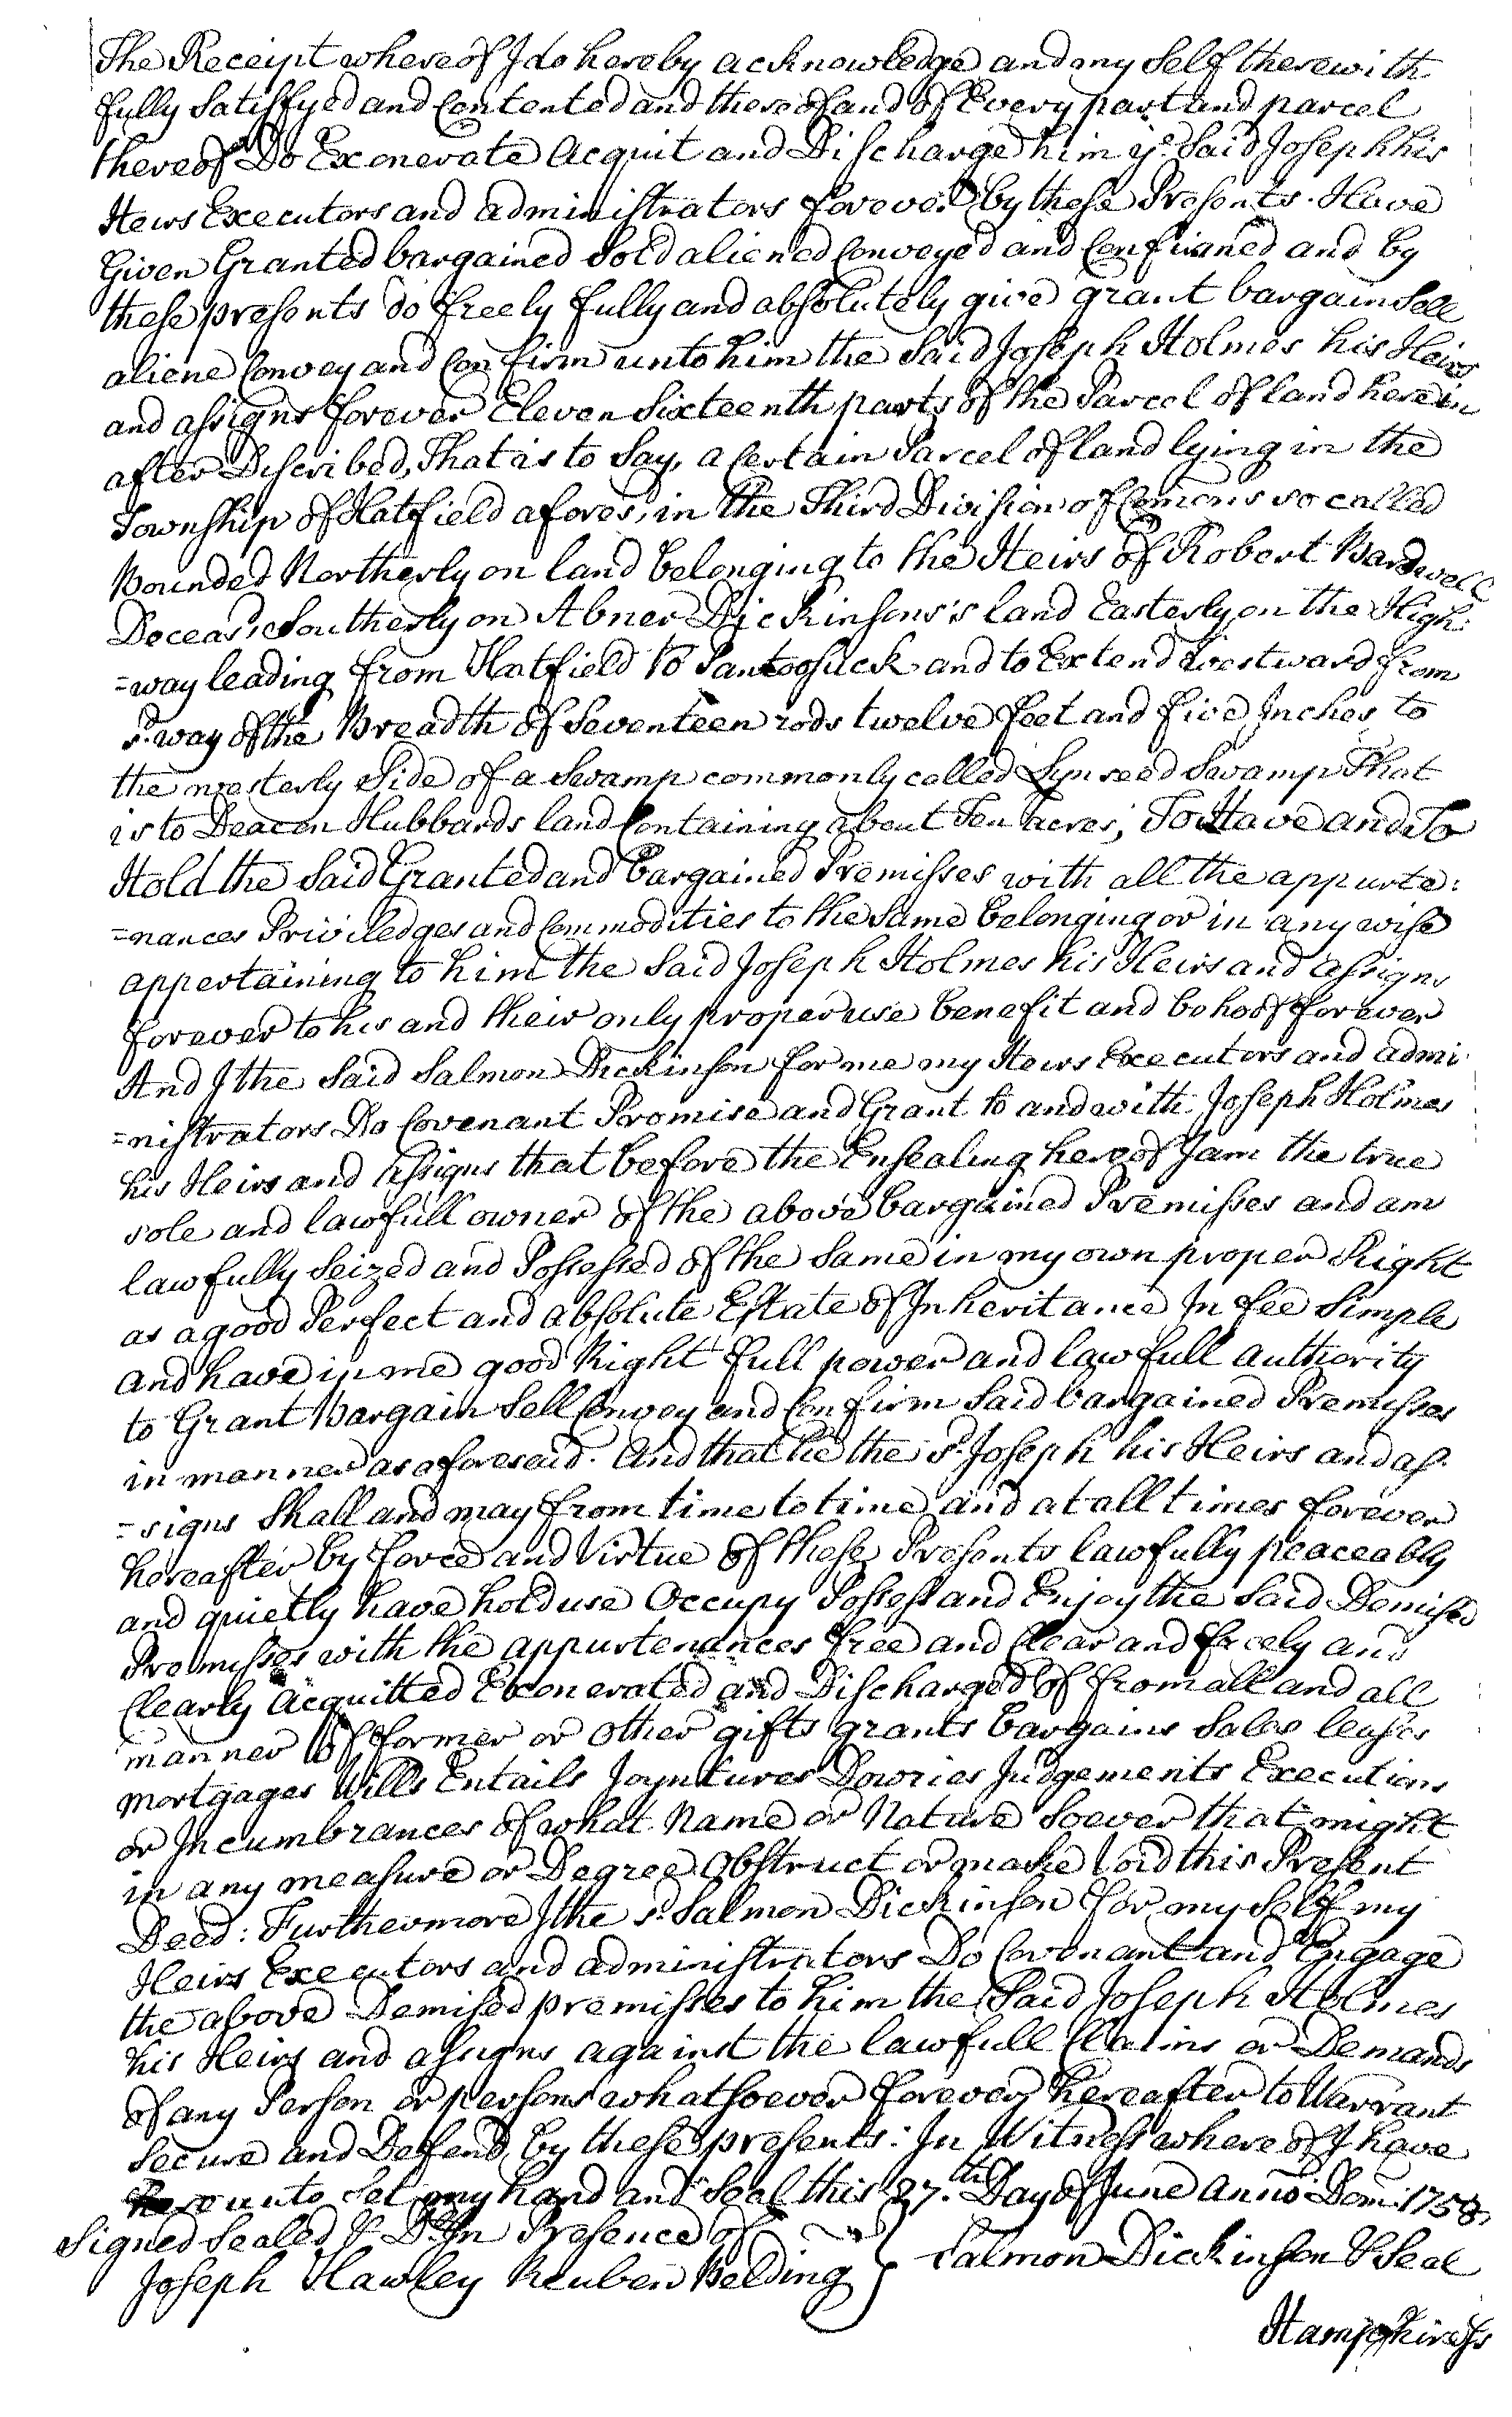 The Receipt whereof I do hereby acknowledge and my Self therewith
fully Satisfyed and Contented and thereof and of Every part and parcel
thereof Do Exonerate Acquit and Discharge him ye. Said Joseph his
Heirs Executors and administrators forever by these Presents. Have
Given Granted bargained Sold aliened Conveyed and Confirmed and by
these presents do freely fully and absolutely give grant bargain Sell
aliene Convey and Confirm unto him the Said Joseph Holmes his Heirs
and assigns forever Eleven Sixteenth parts of the Parcel of land herein
after Discribed, That is to Say, a Certain Parcel of land lying in the
Township of Hatfield afores'd, in the Third Division of Comons so called
Bounded Northerly on land belonging to the Heirs of Robert Bardwell
Deceas'd Southerly on Abner Dickinsons's land Easterly on the High:
=way leading from Hatfield to Pantoosuck and to Extend westward from
sd. way of the Breadth of Seventeen rods twelve feet and five Inches to
the westerly Side of a Swamp commonly called Lynseed Swamp That
is to Deacon Hubbards land Containing about Ten acres; To Have and To
Hold the Said Granted and bargained Premisses with all the appurte:
=nances Priviledges and Commodities to the Same belonging or in any wise
appertaining to him the Said Joseph Holmes his Heirs and assigns
forever to his and their only proper use benefit and behoof forever
And I the Said Salmon Dickinson for me my Heirs Executors and admi
=nistrators Do Covenant Promise and Grant to and with Joseph Holmes
his Heirs and assigns that before the Ensealing hereof I am the true
sole and lawfull owner of the above bargained Premisses and am
lawfully Seized and Possessed of the Same in my own proper Right
as a good Perfect and absolute Estate of Inheritance In fee Simple
and have in me good Right full power and lawfull authority
to Grant Bargain Sell Convey and Confirm Said bargained Premisses
in manner as aforesaid. And that he the sd. Joseph his Heirs and as
=signs Shall and may from time to time and at all times forever
hereafter by force and Virtue of these Presents lawfully peaceably
and quietly have hold use Occupy Possess and Enjoy the Said Demised
Premisses with the appurtenances free and Clear and freely and
Clearly Acquitted Exonerated and Discharged of from all and all
manner of former or other gifts grants bargains Sales leases
mortgages Wills Entails Joyntures Dowries Judgements Executions
or Incumbrances of what Name or Nature Soever that might
in any measure or Degree Obstruct or make Void this Present
Deed: Furthermore I the sd. Salmon Dickinson for my Self my
Heirs Executors and administrators Do Covenant and Engage
the above Demised premisses to him the Said Joseph Holmes
his Heirs and assigns against the lawfull Claims or Demands
of any Person or persons whatsoever forever hereafter to Warrant
Secure and Defend by these presents: In Witness whereof I have
hereunto Set my hand and Seal this 27.th Day of June Anno Dom: 1758
Signed Sealed & Dd. In Presence of
Joseph Hawley Reuben Belding } Salmon Dickinson & Seal
Hampshire Ss